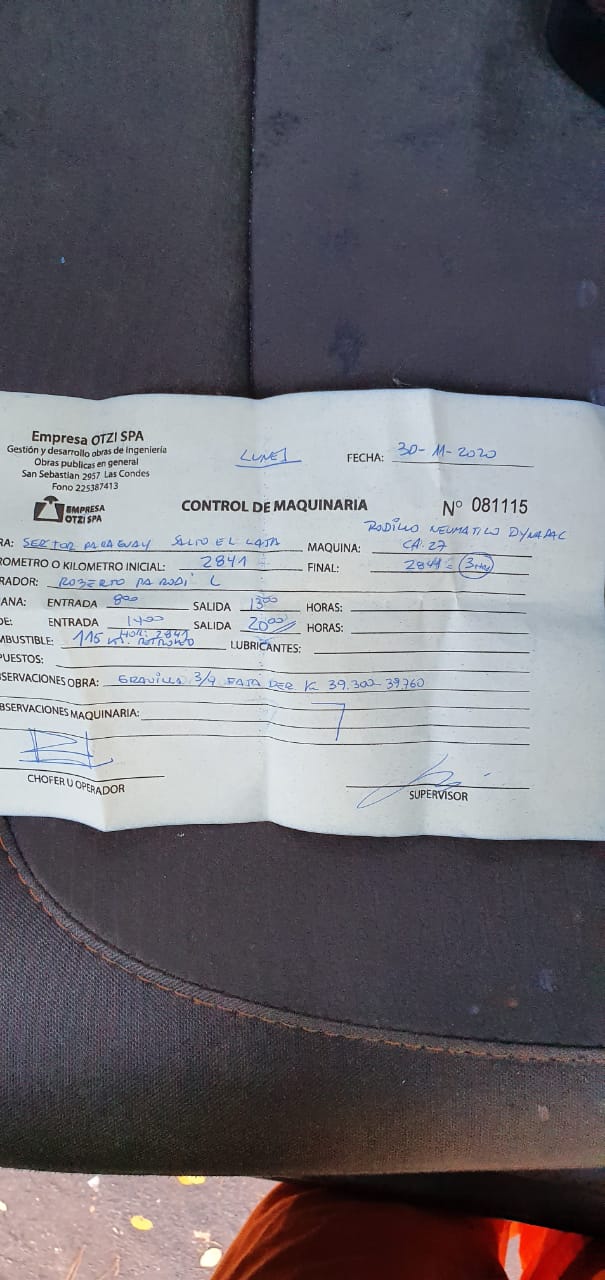 Empresa OTZI SPA
Gestión y desarrollo obras de Ingeniería
Obras publicas en general
San Sebastian 2957 Las Condes
Fono 225387413
EMPRESA
OTZI SPA
LUNES
FECHA: 30-11-2020
CONTROL DE MAQUINARIA
Nº 081115
RODILLO NEUMATICO DYNAPAC
RA: SECTOR PARAGUAY SALTO EL LAJA MAQUINA: CA. 27
ROMETRO O KILOMETRO INICIAL: 2841 FINAL: 2844 = 3
RADOR: ROBERTO PARODI L
ANA: ENTRADA 800 SALIDA 1300 HORAS:
DE: ENTRADA 1400 SALIDA 2000 HORAS:
HOR: 2841
MBUSTIBLE: 115 LUBRICANTES:
PUESTOS:
SERVACIONES OBRA: GRAVILLA 3/4 FAJA DER K 39.300-39.760
BSERVACIONES MAQUINARIA:
CHOFER U OPERADOR
SUPERVISOR